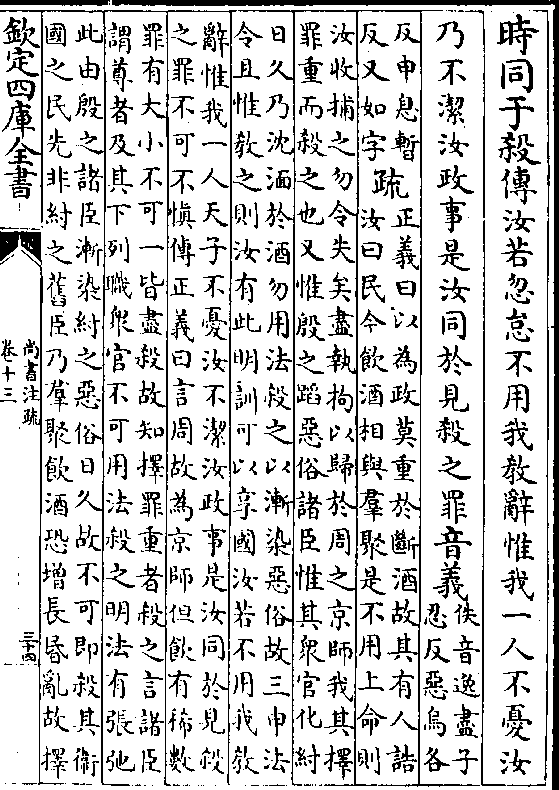 時同于殺傳汝若忽怠不用我教辭惟我一人不憂汝
乃不潔汝政事是汝同於見殺之罪音義
佚音逸盡子
忍反惡烏各
反申息暫
反又如字
疏
正義曰以為政莫重於斷酒故其有人誥
汝曰民今飲酒相與羣聚是不用上命則
汝收捕之勿令失矣盡執拘以歸於周之京師我其擇
罪重而殺之也又惟殷之蹈惡俗諸臣惟其衆官化紂
日久乃沈湎於酒勿用法殺之以漸染惡俗故三申法
令且惟教之則汝有此明訓可以享國汝若不用我教
辭惟我一人天子不憂汝不潔汝政事是汝同於見殺
之罪不可不慎傳正義曰言周故為京師但飲有稀數
罪有大小不可一皆盡殺故知擇罪重者殺之言諸臣
謂尊者及其下列職衆官不可用法殺之明法有張弛
此由殷之諸臣漸染紂之惡俗日久故不可即殺其衛
國之民先非紂之舊臣乃羣聚飲酒恐增長昏亂故擇
欽定四庫全書
尚書注疏
卷十三
三十四